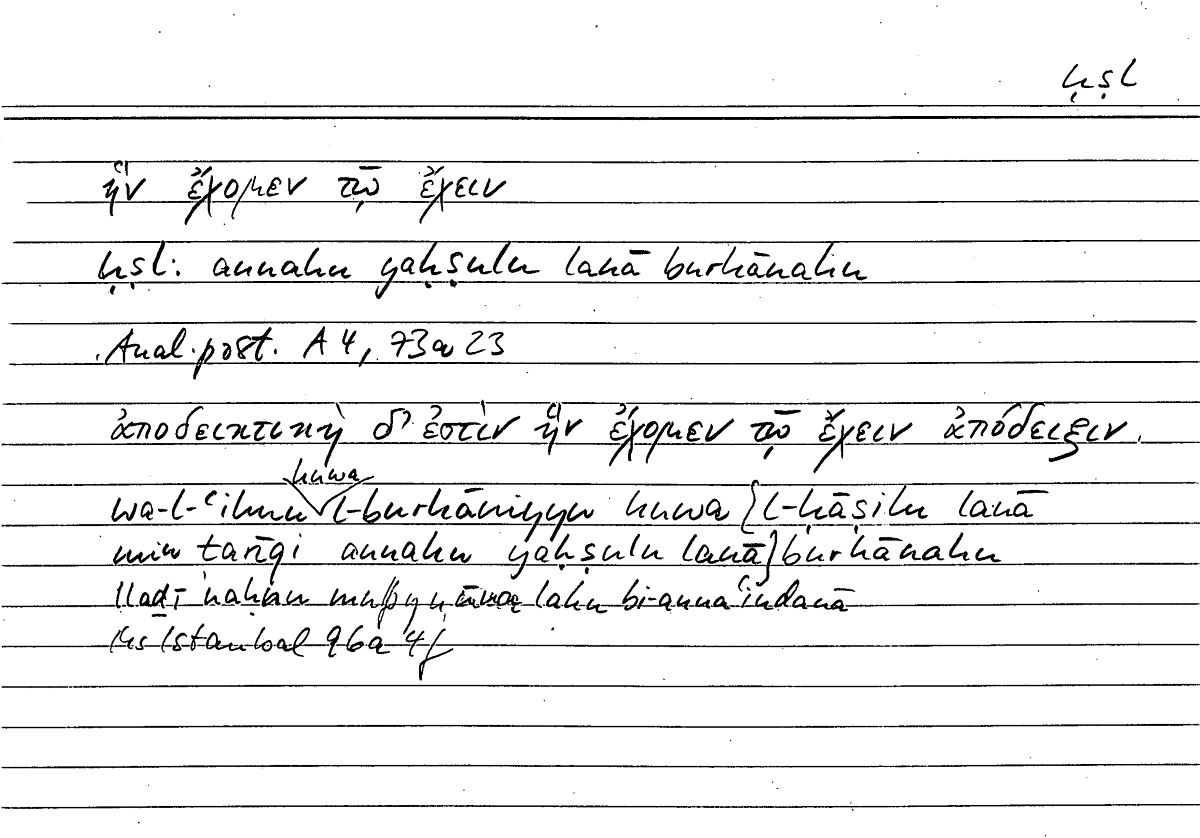 ḥṣl
ἣν ἔχομεν τῷ ἔχειν
ḥṣl: annahu yaḥṣulu lanā burhānahu
Anal. post. A 4, 73a23
ἀποδεικτικὴ δ' ἐστὶν ἣν ἔχομεν τῷ ἔχειν ἀπόδειξιν.
huwa
wa-l-ʿilmu l-burhāniyyu huwa {l-ḥāṣilu lanā
min ṭarīqi annahu yaḥṣulu lanā} burhānahu
llaḏī naḥnu lahu bi-anna ʿindanā
Ms Istanbul 96a 4f